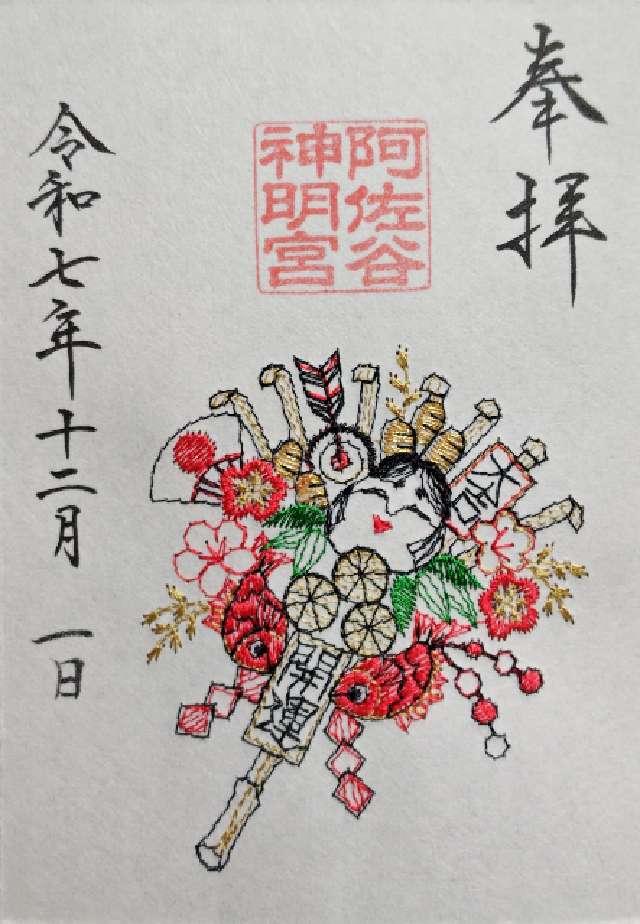 奉拝
阿佐谷
神明宮
大吉
開運
令和七年十二月一日